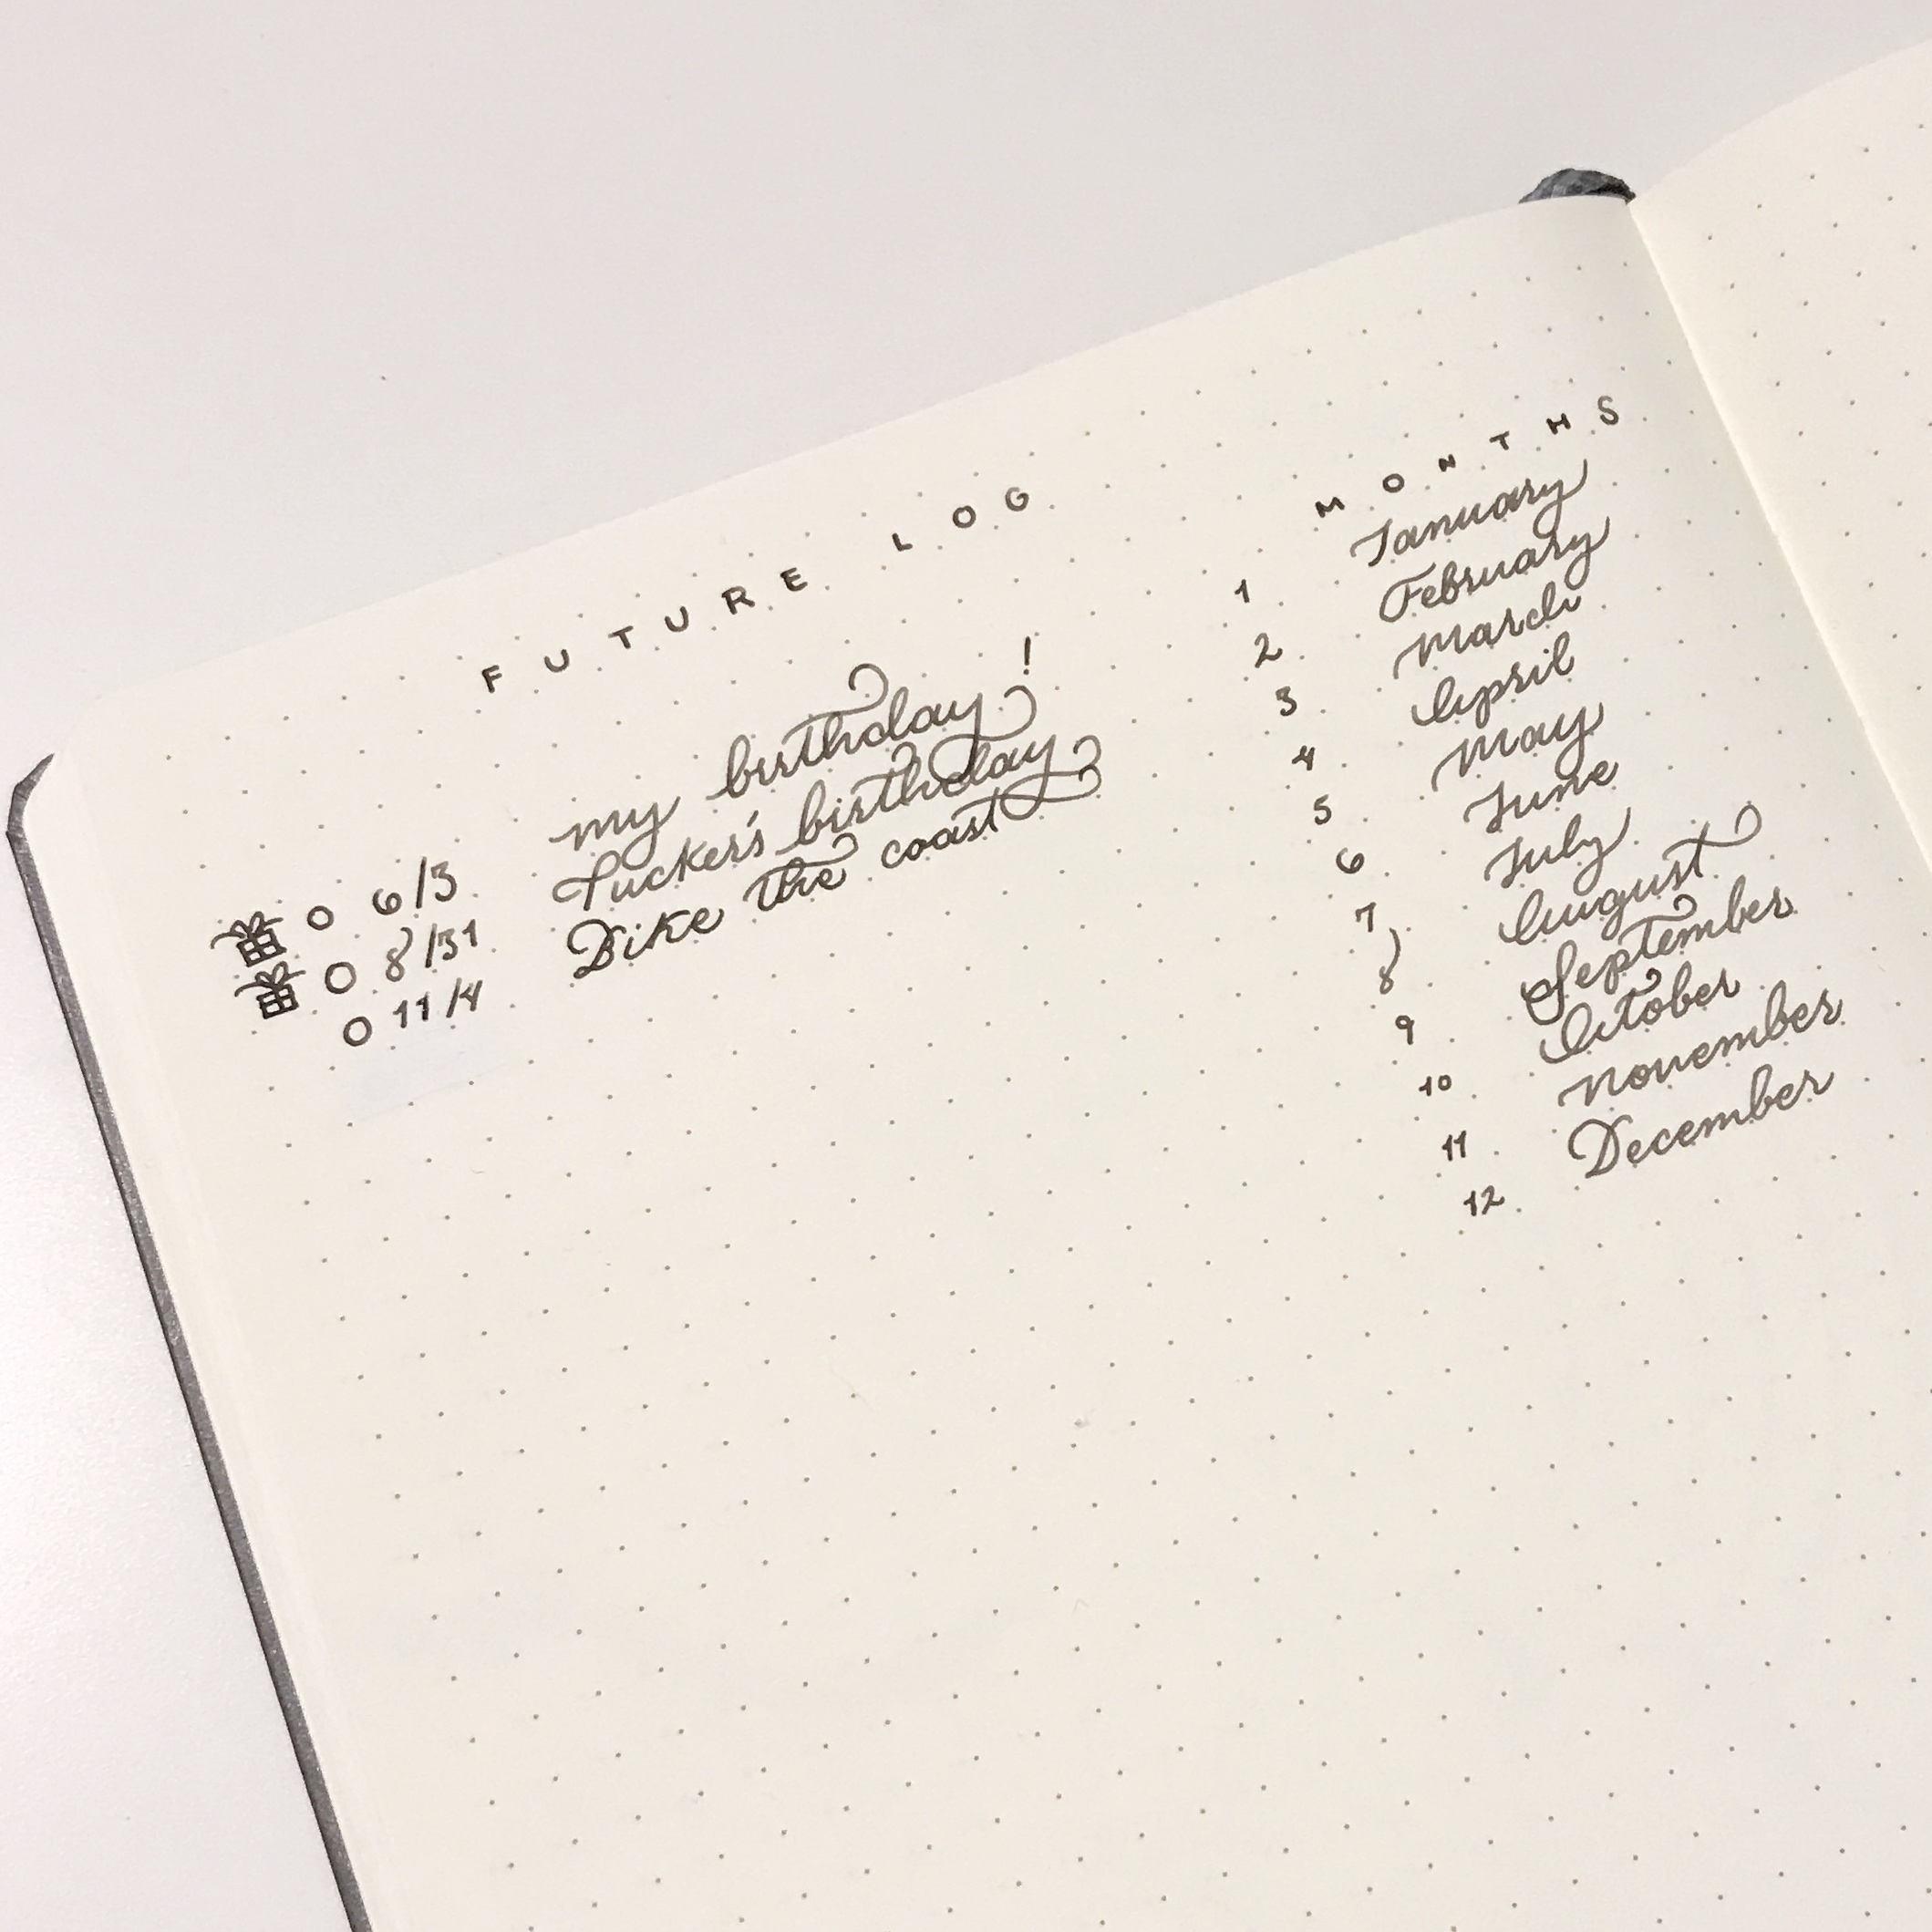 FUTURE LOG
6/3 my birthday!
8/31 Tucker's birthday
11/4 Bike the coast
MONTHS
1 January
2 February
3 March
4 April
5 May
6 June
7 July
8 August
9 September
10 October
11 November
12 December